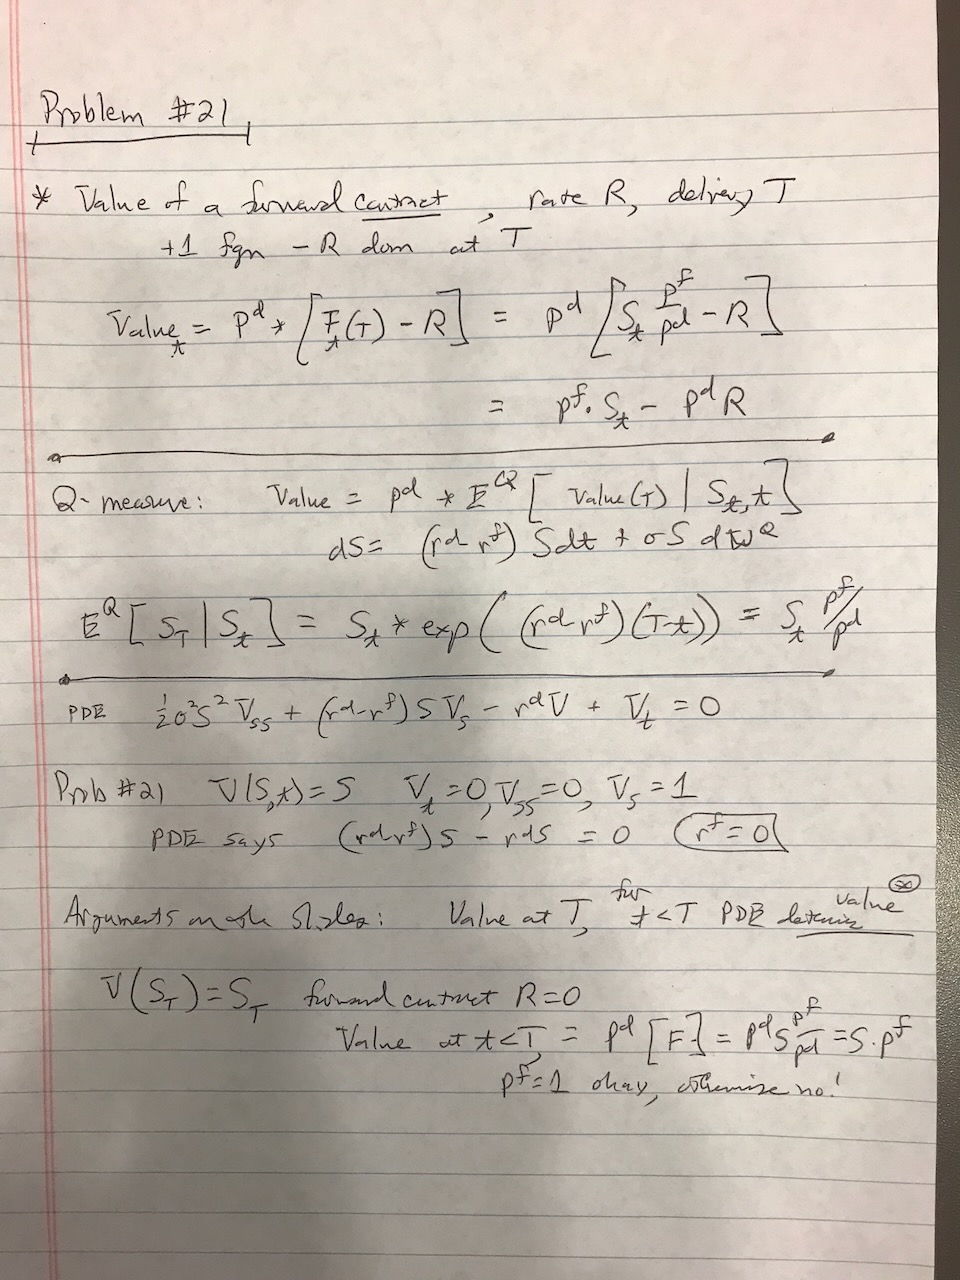 Problem #21
* Value of a forward contract, rate R, delivery T
+1 fgn - R dom at T
Value_t = P^d * [F_t(T) - R] = P^d [S_t P^f/P^d - R]
= P^f · S_t - P^d R
Q-measure: Value = P^d * E^Q [Value(T) | S_t, t]
dS = (r^d - r^f) S dt + σS dW^Q
E^Q [S_T | S_t] = S_t * exp((r^d - r^f)(T-t)) = S_t P^f/P^d
PDE ½σ²S² V_SS + (r^d - r^f) S V_S - r^d V + V_t = 0
Prob #21 V(S,t) = S V_t = 0, V_SS = 0, V_S = 1
PDE says (r^d - r^f) S - r^d S = 0 r^f = 0
Arguments slides: Value at T, for t<T PDE value
V(S_T) = S_T forward contract R=0
Value at t<T, = P^d [F] = P^d S P^f/P^d = S · P^f
P^f = 1 okay, otherwise no!